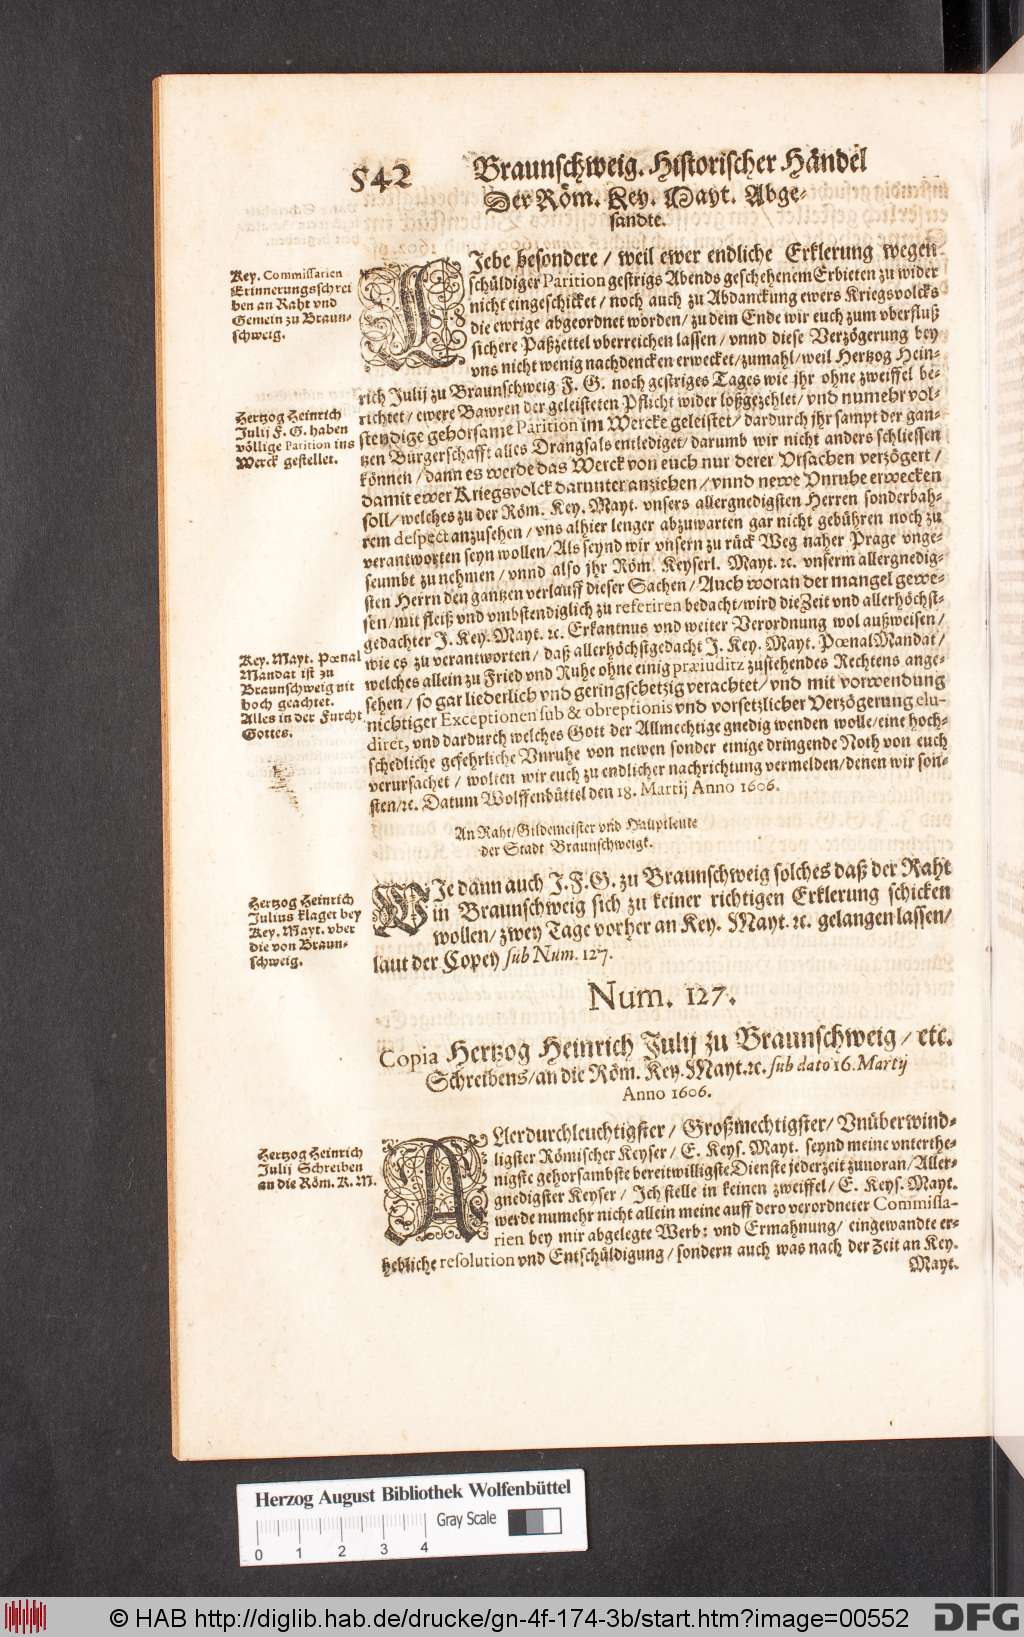 542 Braunschweig. Historischer Händel
Der Röm. Key. Mayt. Abge-
sandte.
Key. Commissarien
Erinnerungsschrei
ben an Raht vnd
Gemein zu Braun-
schweig.
LIebe besondere / weil ewer endliche Erklerung wegen
schüldiger Parition gestrigs Abends geschehenem Erbieten zu wider
nicht eingeschicket / noch auch zu Abdanckung ewers Kriegsvolcks
die ewrige abgeordnet worden / zu dem Ende wir euch zum vberfluß
sichere Paßzettel vberreichen lassen / vnnd diese Verzögerung bey
vns nicht wenig nachdencken erwecket / zumahl / weil Hertzog Hein-
rich Julij zu Braunschweig F. G. noch gestriges Tages wie jhr ohne zweiffel be-
richtet / ewere Bawren der geleisteten Pflicht wider loßgezehlet / vnd numehr vol-
stendige gehorsame Parition im Wercke geleistet / dardurch jhr sampt der gan-
tzen Bürgerschafft alles Drangsals entlediget / darumb wir nicht anders schliessen
können / dann es werde das Werck von euch nur derer Vrsachen verzögert /
damit ewer Kriegsvolck darunter anziehen / vnnd newe Vnruhe erwecken
soll / welches zu der Röm. Key. Mayt. vnsers allergnedigsten Herren sonderbah-
rem despect anzusehen / vns alhier lenger abzuwarten gar nicht gebühren noch zu
verantworten seyn wollen / Als seynd wir vnsern zu rück Weg naher Prage vnge-
seumbt zu nehmen / vnnd also jhr Röm. Keyserl. Mayt. ꝛc. vnserm allergnedig-
sten Herrn den gantzen verlauff dieser Sachen / Auch woran der mangel gewe-
sen / mit fleiß vnd vmbstendiglich zu referiren bedacht / wird die Zeit vnd allerhöchst-
gedachter J. Key. Mayt. ꝛc. Erkantnus vnd weiter Verordnung wol außweisen /
wie es zu verantworten / daß allerhöchstgedacht J. Key. Mayt. Pœnal Mandat /
welches allein zu Fried vnd Ruhe ohne einig præiuditz zustehendes Rechtens ange-
sehen / so gar liederlich vnd geringschetzig verachtet / vnd mit vorwendung
nichtiger Exceptionen sub & obreptionis vnd vorsetzlicher Verzögerung elu-
diret, vnd dardurch welches Gott der Allmechtige gnedig wenden wolle / eine hoch-
schedliche gefehrliche Vnruhe von newen sonder einige dringende Noth von euch
verursachet / wolten wir euch zu endlicher nachrichtung vermelden / denen wir son-
sten / ꝛc. Datum Wolffenbüttel den 18. Martij Anno 1606.
Hertzog Heinrich
Julij F. G. haben
völlige Parition ins
Werck gestellet.
Key. Mayt. Pœnal
Mandat ist zu
Braunschweig nit
hoch geachtet.
Alles in der Furcht
Gottes.
An Raht / Gildemeister vnd Hauptleute
der Stadt Braunschweigk.
Hertzog Heinrich
Julius klaget bey
Key. Mayt. vber
die von Braun-
schweig.
WIe dann auch J. F. G. zu Braunschweig solches daß der Raht
in Braunschweig sich zu keiner richtigen Erklerung schicken
wollen / zwey Tage vorher an Key. Mayt. ꝛc. gelangen lassen /
laut der Copey sub Num. 127.
Num. 127.
Copia Hertzog Heinrich Julij zu Braunschweig / etc.
Schreibens / an die Röm. Key. Mayt. ꝛc. sub dato 16. Martij
Anno 1606.
Hertzog Heinrich
Julij Schreiben
an die Röm. K. M.
ALlerdurchleuchtigster / Großmechtigster / Vnüberwind-
ligster Römischer Keyser / E. Keys. Mayt. seynd meine vnterthe-
nigste gehorsambste bereitwilligste Dienste jederzeit zuuoran / Aller-
gnedigster Keyser / Ich stelle in keinen zweiffel / E. Keys. Mayt.
werde numehr nicht allein meine auff dero verordneter Commissa-
rien bey mir abgelegte Werb: vnd Ermahnung / eingewandte er-
hebliche resolution vnd Entschüldigung / sondern auch was nach der Zeit an Key.
Mayt.
Herzog August Bibliothek Wolfenbüttel
Gray Scale
0 1 2 3 4
© HAB http://diglib.hab.de/drucke/gn-4f-174-3b/start.htm?image=00552
DFG